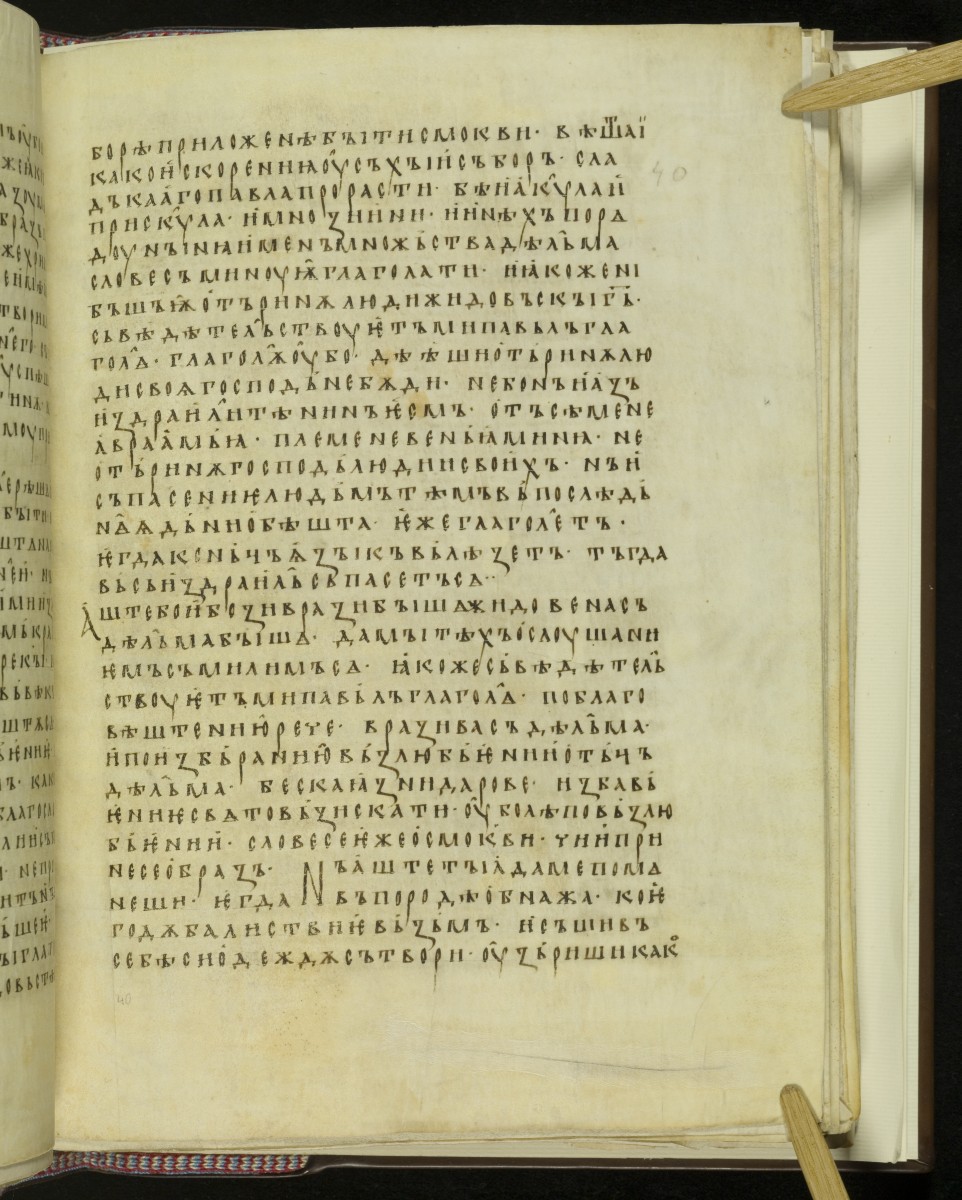 борѣприложенѣбꙑтисмокви· вѣштаꙵ
какоискорениꙗоусъхꙑисъборъ· сла
дъкаагопавлапрорасти· бѣиакѵлаи
прискѵла· имноꙁиини· иинѣхъпорѧ
доунꙑнꙗименъмножьствадѣльма
словесъминоуѭглаголати· ꙗкоженꙇ
бъшьѭотъринѫлюдижидовъскꙑ҄гъ·
съвѣдѣтельствоуѥтъмипавьлъгла
голѧ· глаголѭоубо· дѣѣшиотъринѫлю
дисвоѩгосподьнебѫди· небонъиаꙁъ
иꙁдраилитѣнинъѥсмь· отъсѣмене
авраамьꙗ· племеневенꙗминꙗ· не
отъринѫгосподьлюдиисвоихъ· нъи
съпасениѥлюдьмътѣмъвьпослѣдь
нѧѩдьниобѣшта· ѥжеглаголетъ·
ѥгдаконьчъѩꙁꙑкъвьлѣꙁетъ· тъгда
вьсьиꙁдраильсъпасетъсѧ··
Аштебоибоꙁивраꙁибꙑшѧжидовенасъ
дѣльмабꙑшѧ· дамꙑтѣхъослоушани
ѥмъсъмилимъсѧ· ꙗкожесъвѣдѣтель
ствоуѥтъмипавьлъглаголѧ· поблаго
вѣштениюрече· враꙁивасъдѣльма·
ипоиꙁбьраниювьꙁлюбьѥнииотьчъ
дѣльма· бескаꙗꙁнидарове· иꙁбавь
ѥниѥсватовьꙁискати· оуболѣповьꙁлю
бьѥнии· словесеѥжеосмокви· чиипри
несеобраꙁъ· Нъаштетꙑадамепомѧ
неши· ѥгдавъпородѣобнажа· коѥ
годѫбалиствиѥвьꙁьмъ· исъшивъ
себѣснодеждѫсътвори· оуꙁьришикако
40
40